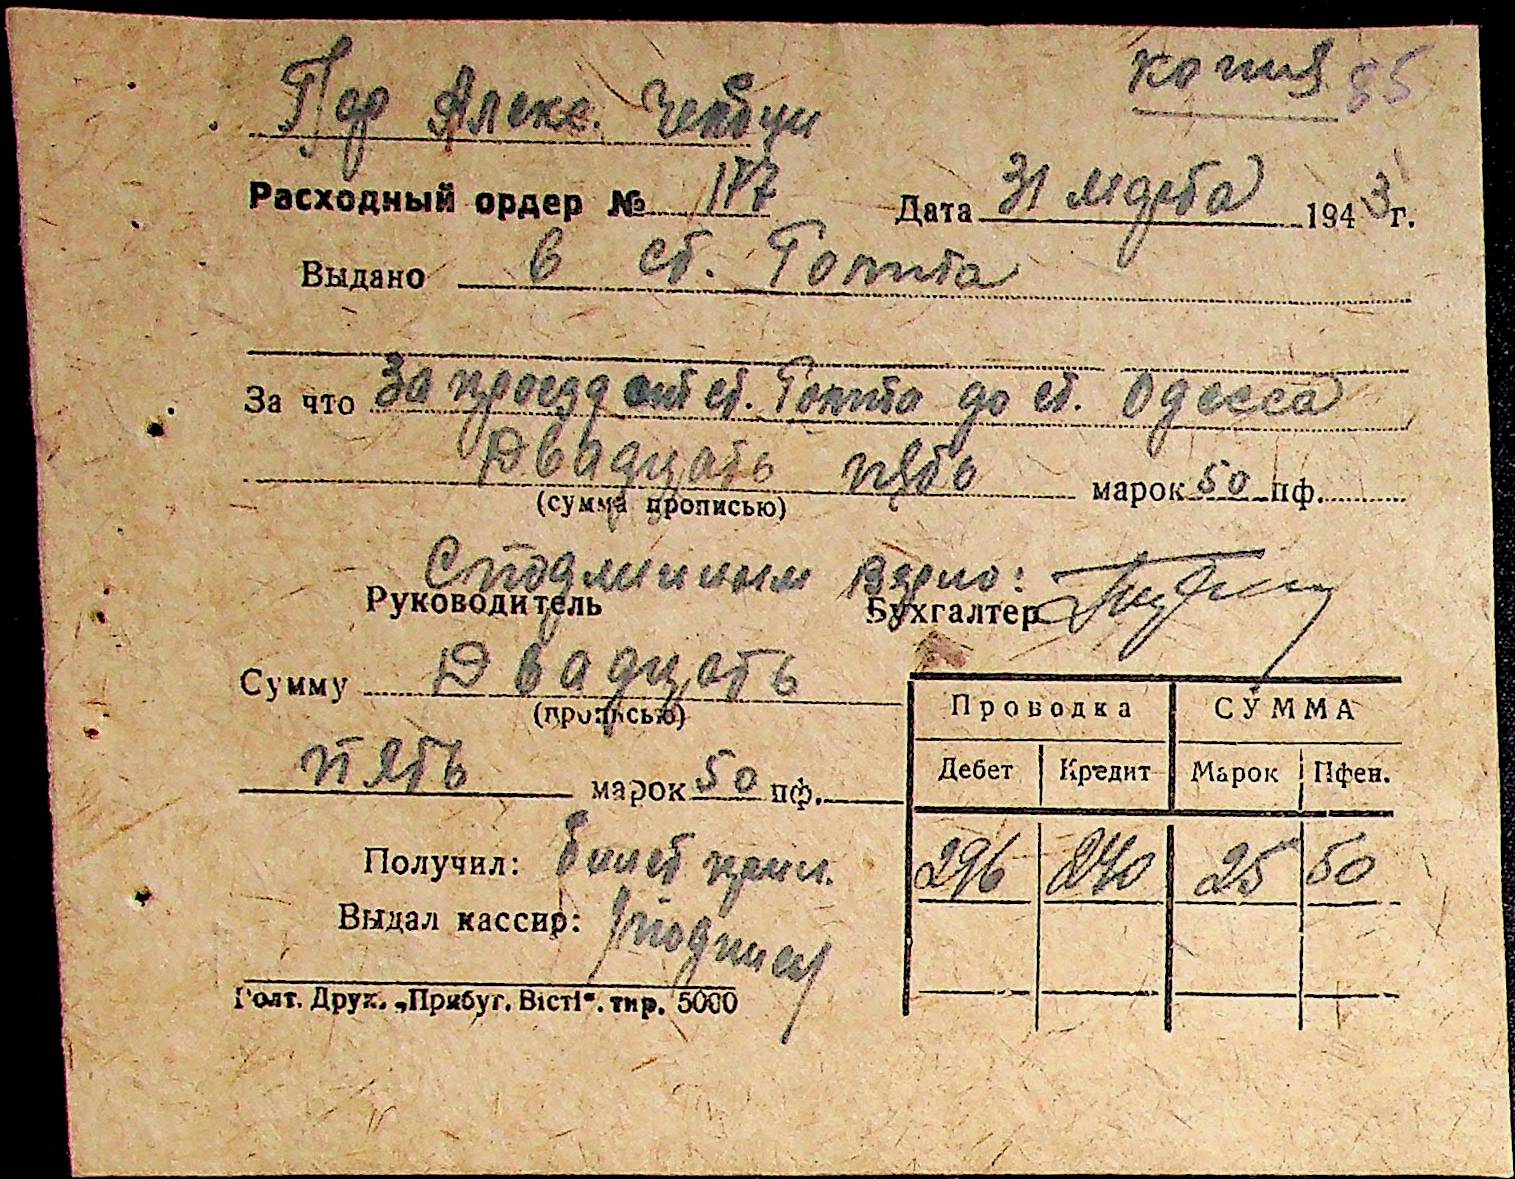 копия 85
Пер Алекс.
Расходный ордер № 177 Дата 31 марта 1943 г.
Выдано в ст. Голта
За что За проезд от ст. Голта до ст. Одесса
Двадцать пять марок 50 пф.
(сумма прописью)
С подлинным верно:
Руководитель Бухгалтер
Сумму Двадцать
(прописью)
пять марок 50 пф.
Проводка СУММА
Дебет Кредит Марок Пфен.
296 240 25 50
Получил: билет прил.
Выдал кассир: /подпись/
Голт. Друк. „Прибуг. Вісті“. тир. 5000